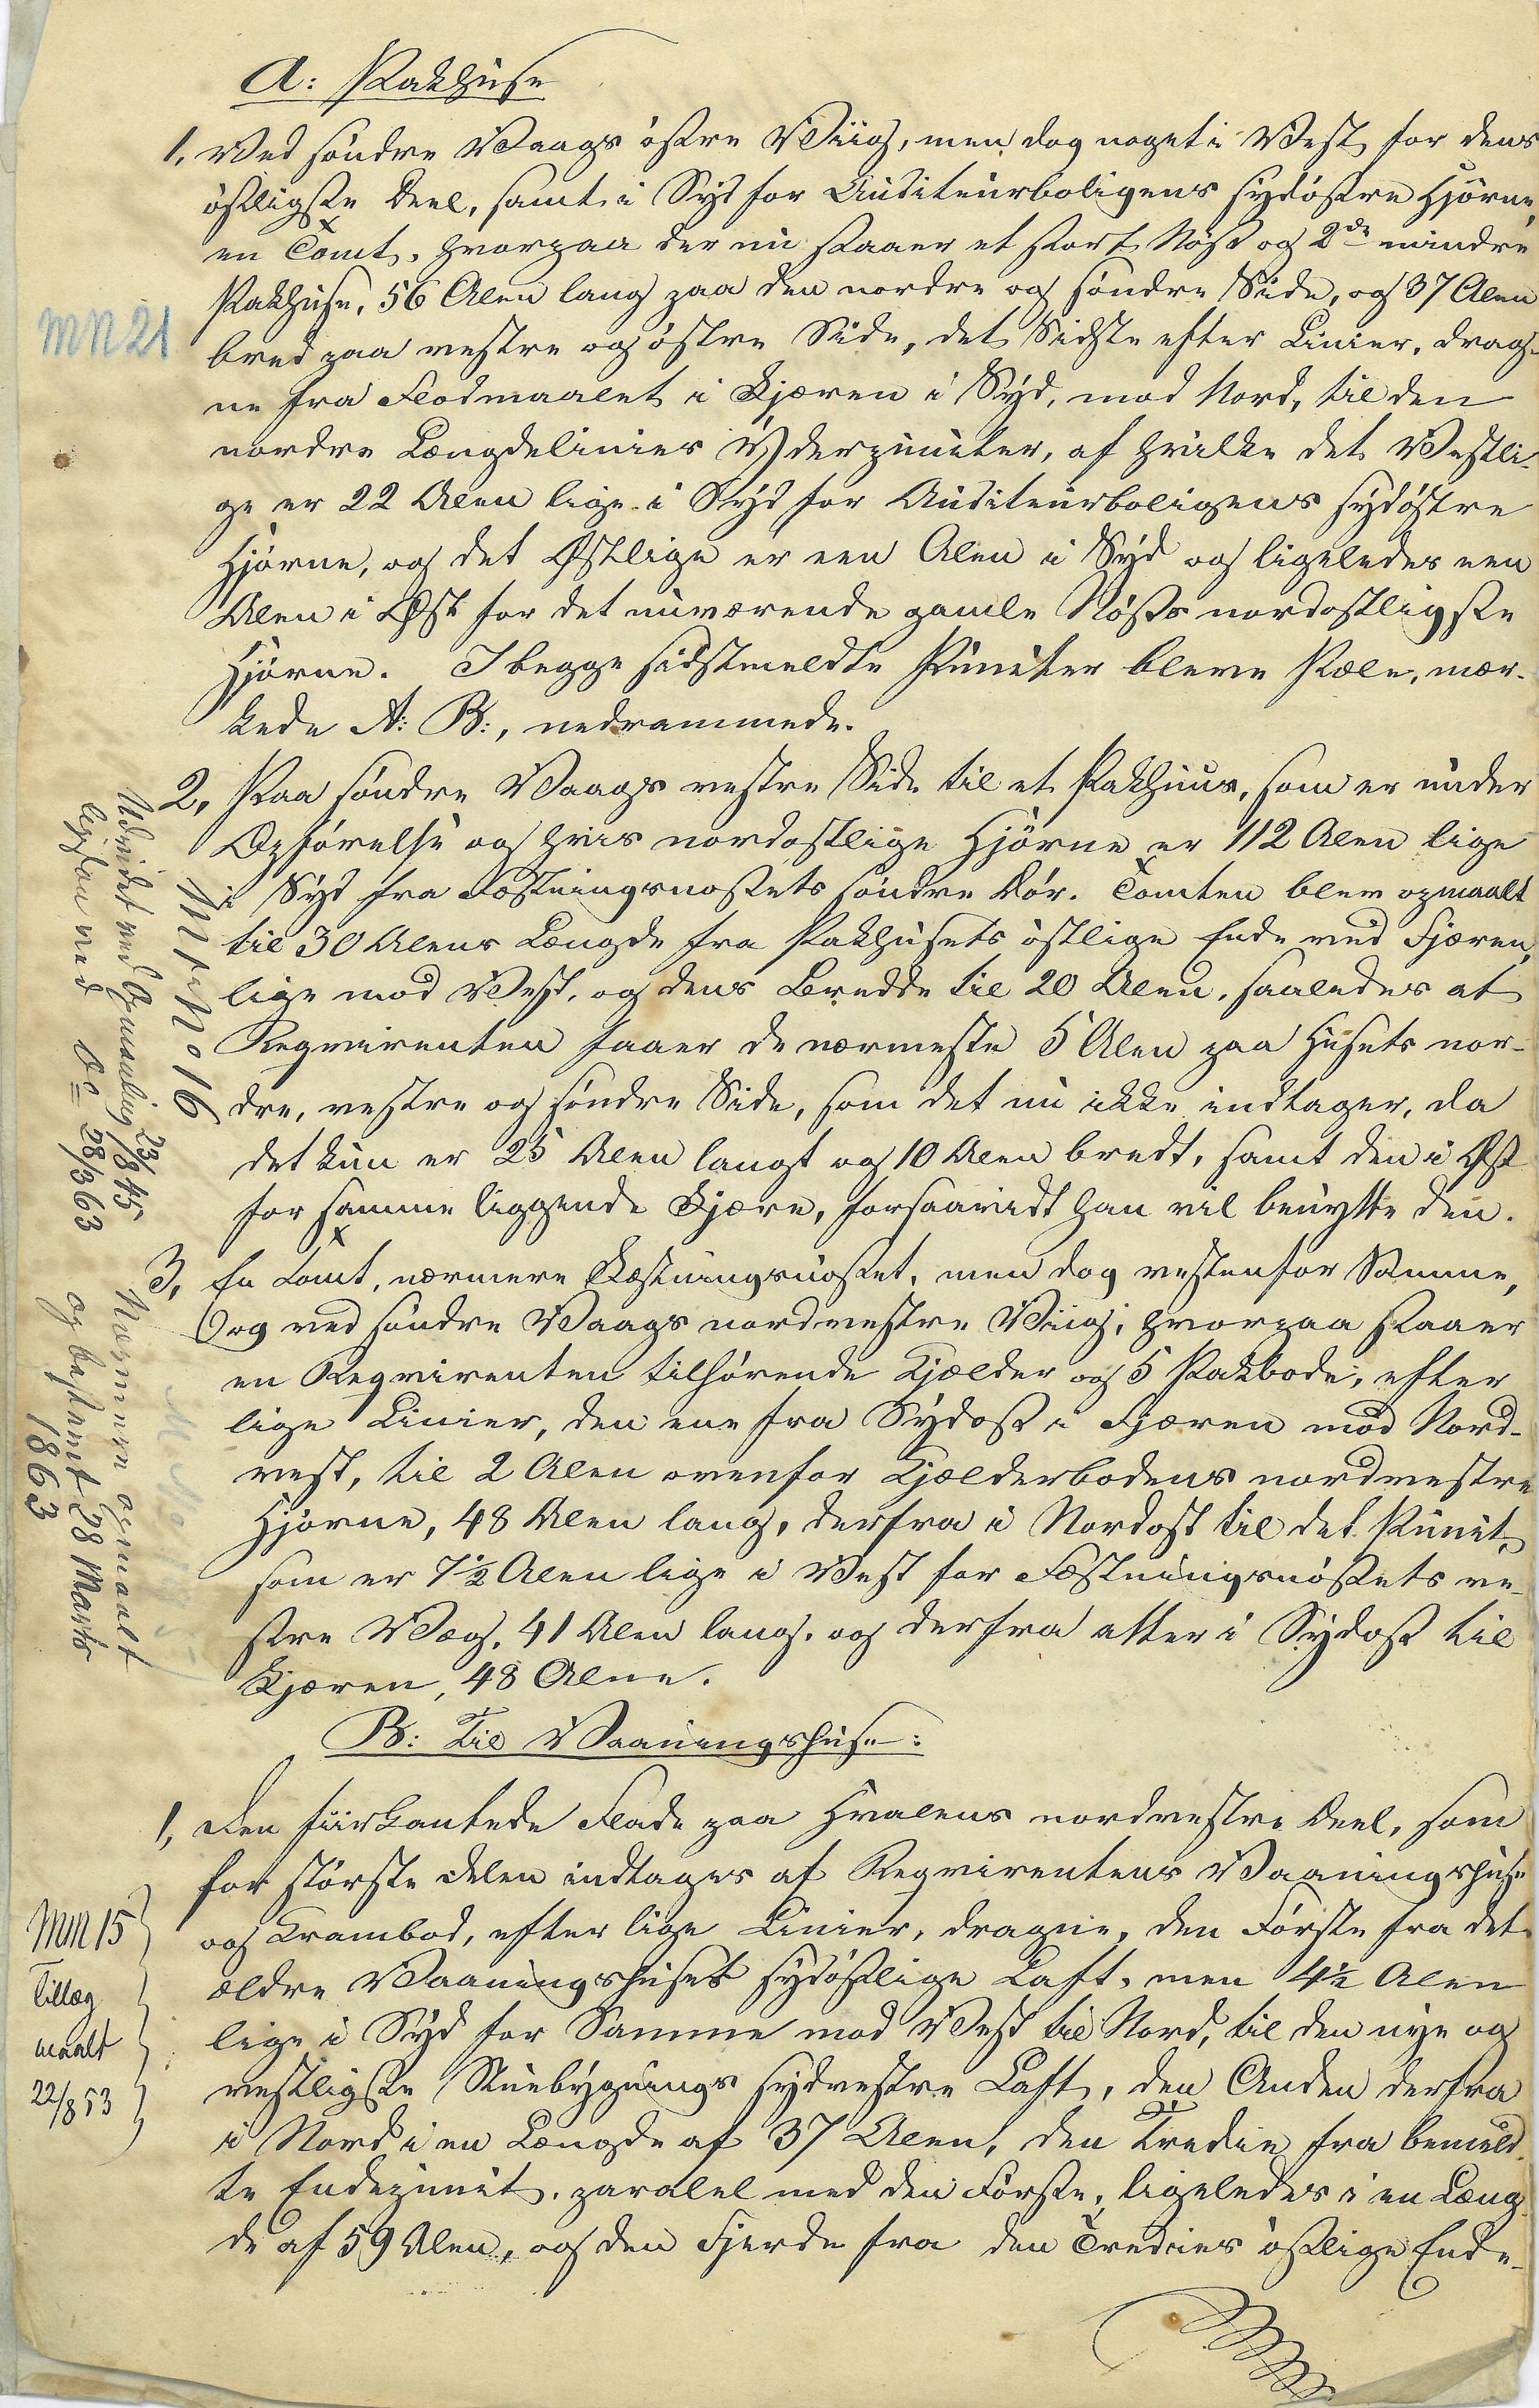 A: Pakhuse
1, Ved söndre Vaags östre Viig, men dog noget i Vest for dens
östligste Deel, samt i Syd for Auditeurboligens sydöstre Hjörne,
en Tomt, hvorpaa der nu staaer et stort Nöst og 2de mindre
Pakhuse, 56 Alen lang paa den nordre og söndre Side, og 37 Alen
MN 21
bred paa vestre og östre Side, det Sidste efter Linier, drag-
ne fra Flodmaalet i Fjæren i Syd, mod Nord, til den
nordre Længdelinies Yderpunkter, af hvilke det Vestli-
ge er 22 Alen lige i Syd for Auditeurboligens sydöstre
Hjörne, og det Østlige er een Alen i Syd og ligeledes een
Alen i Øst for det nuværende gamle Nösts nordostligste
Hjörne. I begge sidstmeldte Punkter bleve Pæle, mær-
kede A: B:, nedrammede.
2, Paa söndre Vaags vestre Side til et Pakhuus, som er under
Opförelse og hvis nordostlige Hjörne er 112 Alen lige
i Syd fra Fæstningsnöstets söndre Dör. Tomten blev opmaalt
til 30 Alens Længde fra Pakhusets östlige Ende ved Fjæren,
lige mod Vest, og dens Bredde til 20 Alen, saaledes at
Reqvirenten faaer de nærmeste 5 Alen paa Husets nor-
dre, vestre og söndre Side, som det nu ikke indtager, da
det kun er 25 Alen langt og 10 Alen bredt, samt den i Øst
for samme liggende Fjære, forsaavidt han vil benytte den.
Mt: No 16
Udvidet ved Opmaaling 23/8 45
ligesan ved Do 28/3 63
3, En Tomt, nærmere Fæstningsnöstet, men dog vestenfor Samme,
og ved söndre Vaags nordvestre Viig, hvorpaa staaer
en Reqvirenten tilhörende Kjælder og 5 Pakbode, efter
lige Linier, den ene fra Sydost i Fjæren mod Nord-
vest, til 2 Alen ovenfor Kjælderbodens nordvestre
Hjörne, 48 Alen lang, derfra i Nordost til det Punkt,
som er 7½ Alen lige i Vest for Fæstningsnöstets ve-
stre Væg, 41 Alen lang, og derfra atter i Sydost til
Fjæren, 48 Alne.
Nærmere opmaalt
og bestemt 28 Marts
1863
B: Til Vaaningshuse:
1, Den fiirkantede Flade paa Hvalens nordvestre Deel, som
for störste Delen indtages af Reqvirentens Vaaningshuse
og Krambod, efter lige Linier, dragne, den Förste fra det
ældre Vaaningshuset sydöstlige Laft, men 4½ Alen
lige i Syd for Samme mod Vest til Nord, til den nye og
vestligste Stuebygnings sydvestre Laft, den Anden derfra
i Nord i en Længde af 37 Alen, den Tredie fra bemeld-
te Endepunkt, paralel med den Förste, ligeledes i en Læng-
de af 59 Alen, og den Fjerde fra den Tredies östlige Ende-
MN 15
Tillæg
maalt
22/8 53